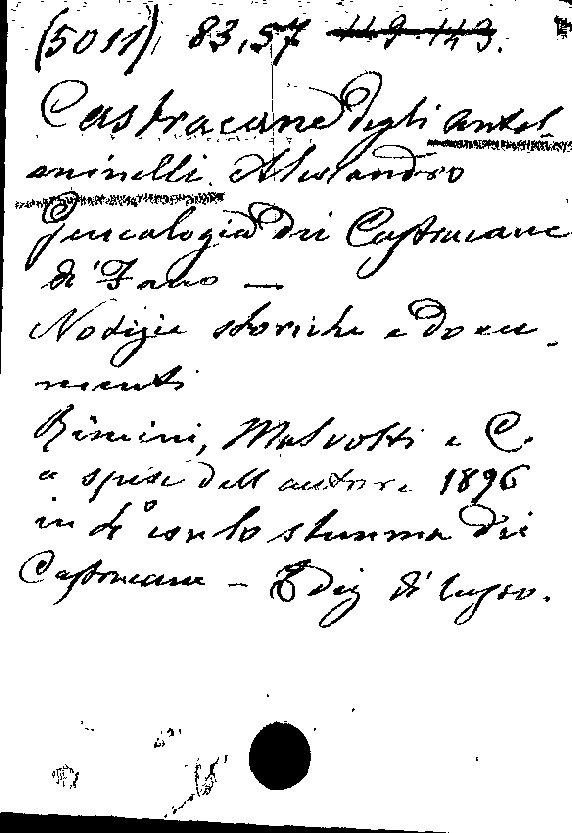 (5011) 83,57 119.143.
Castracane degli Antel
minelli Alessandro
Genealogia dei Castracane
di Fano —
Notizie storiche e docu-
menti
Rimini, Malvolti e C.
a spese dell'autore 1896
in 4° con lo stemma dei
Castracane – Ediz di lusso.